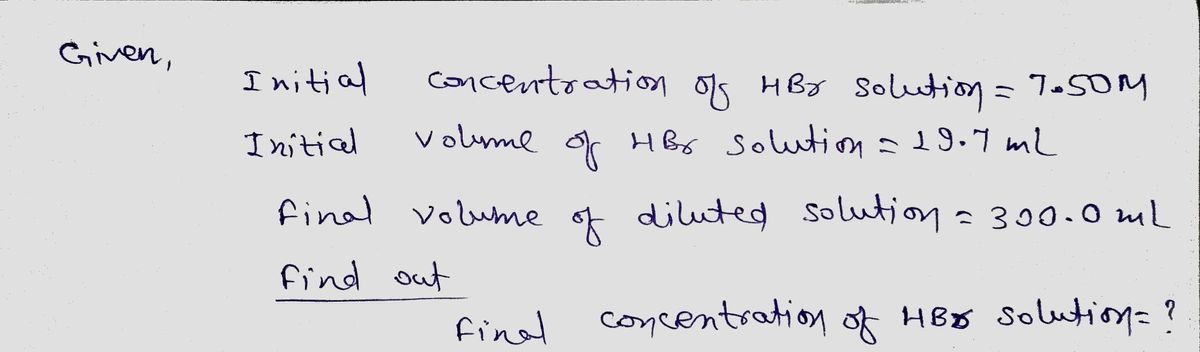 Given,
Initial concentration of HBr solution = 7.50M
Initial volume of HBr solution = 19.7 mL
final volume of diluted solution = 300.0 mL
find out
final concentration of HBr solution= ?